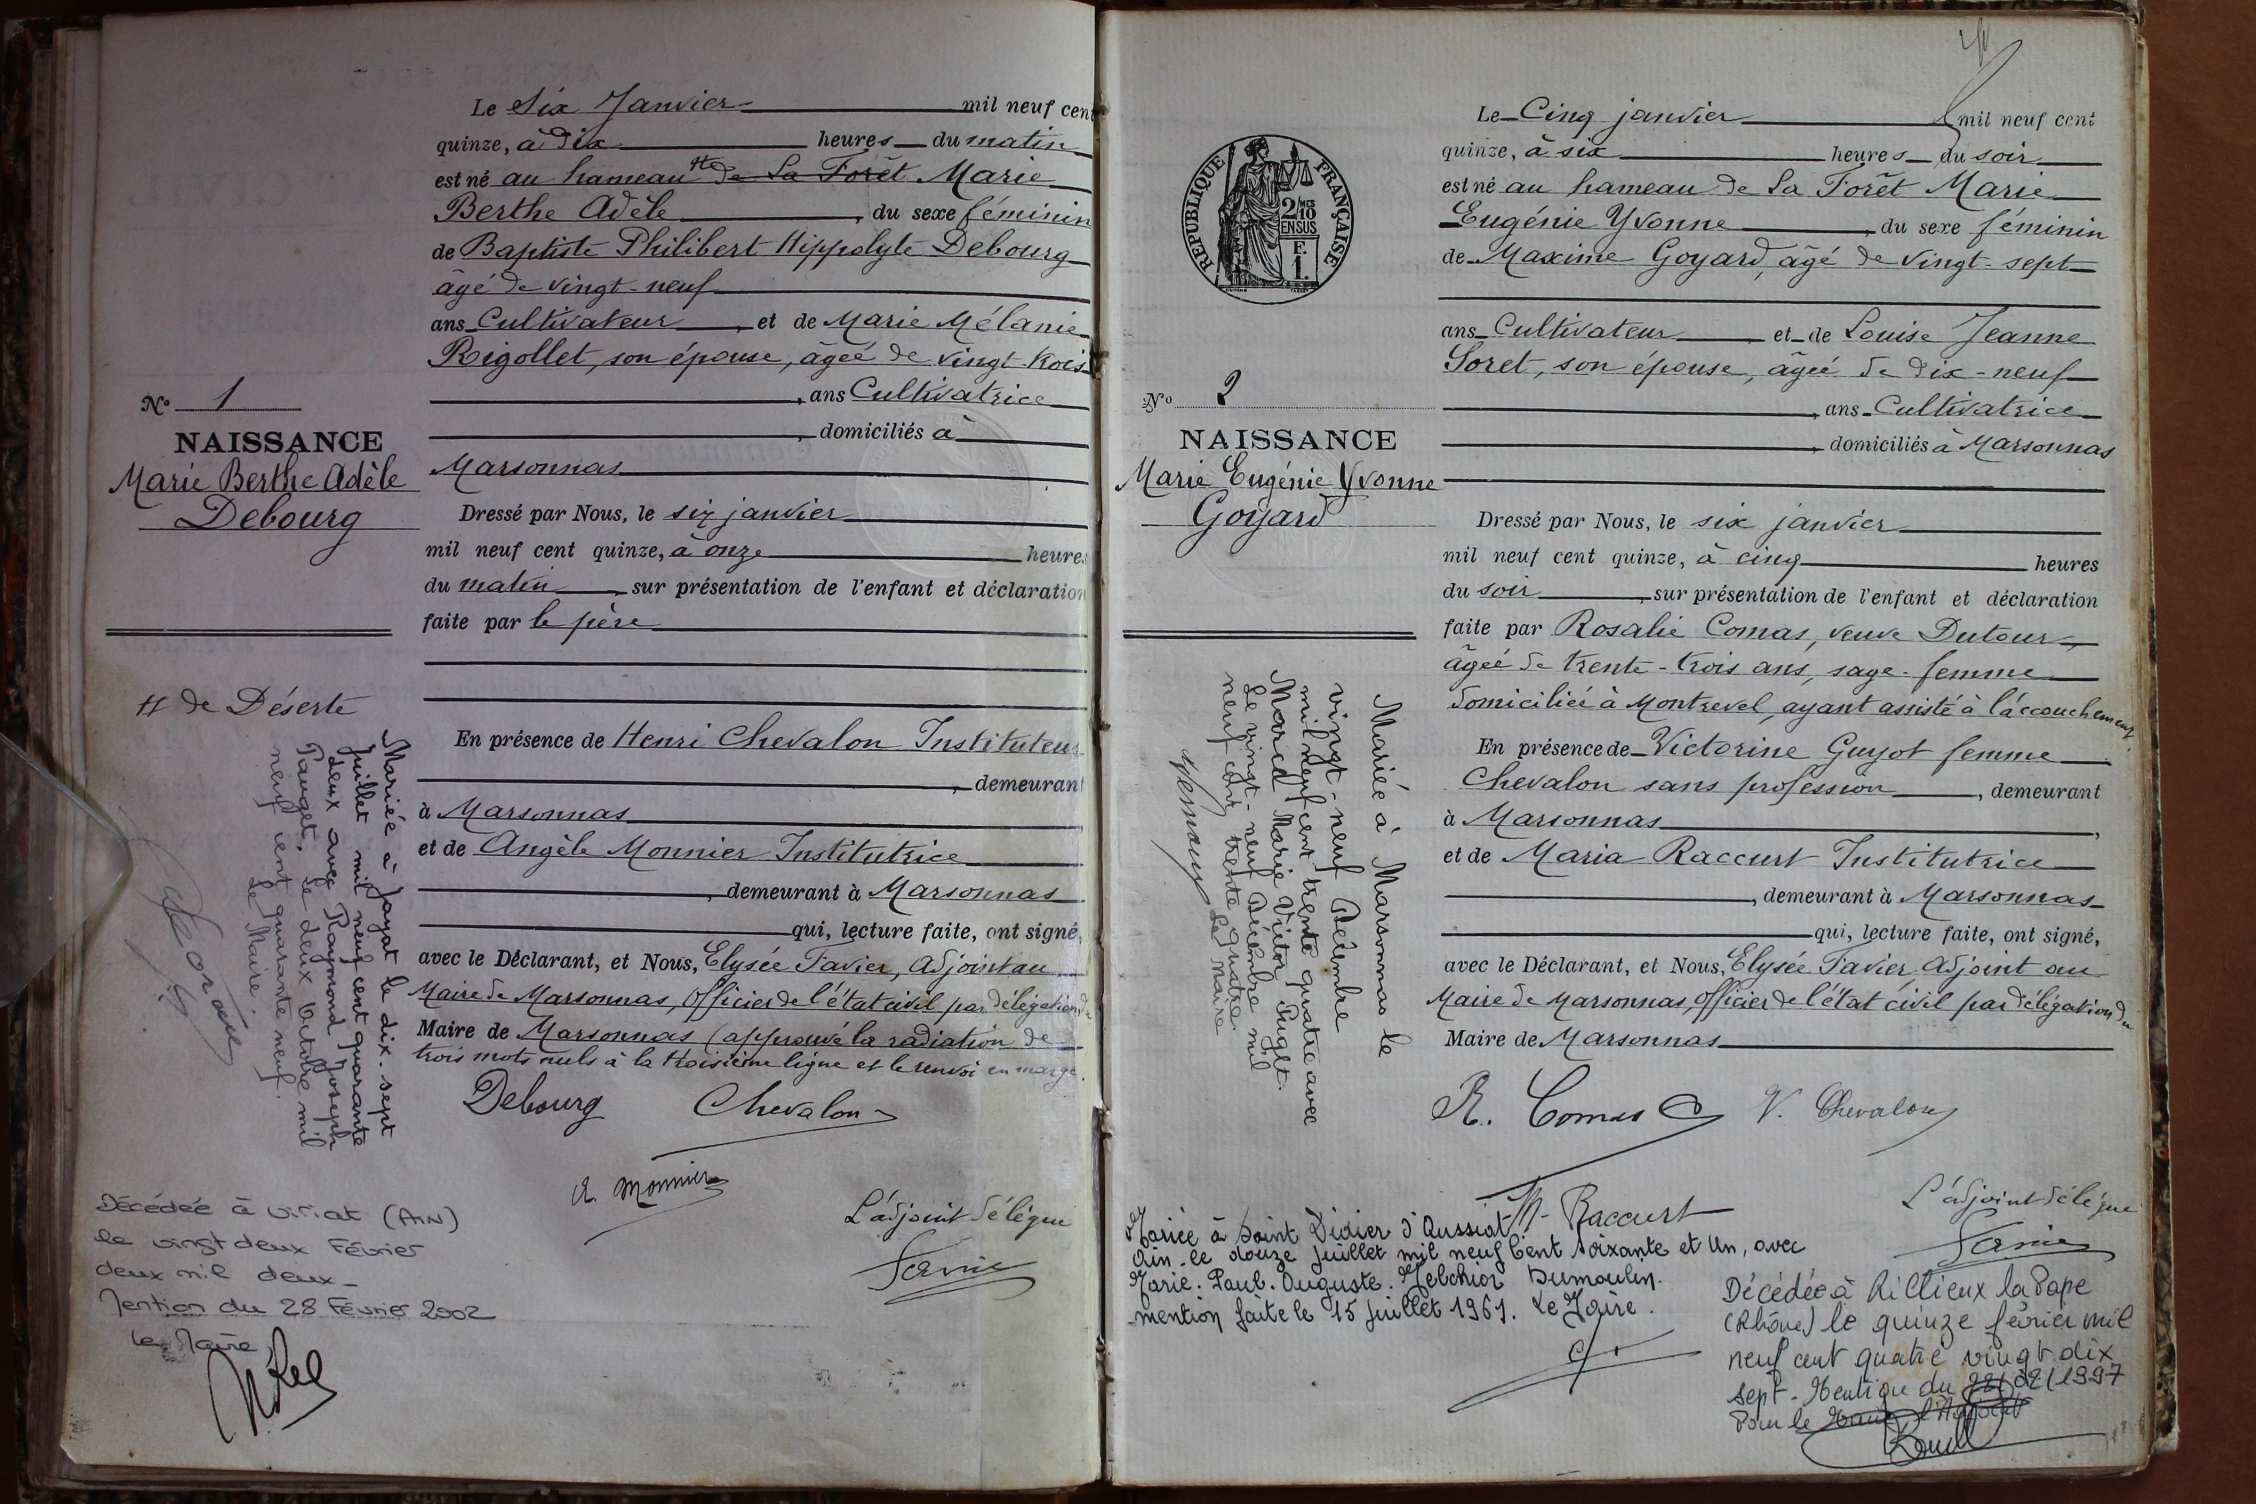 Le Six Janvier mil neuf cent
quinze, à dix heures du matin
est né au hameau # de La Forêt Marie
Berthe Adèle, du sexe féminin
de Baptiste Philibert Hippolyte Debourg
âgé de vingt-neuf
ans Cultivateur, et de Marie Mélanie
Rigollet, son épouse, âgée de vingt-trois
, ans Cultivatrice
, domiciliés à
Marsonnas
N° 1
NAISSANCE
Marie Berthe Adèle
Debourg
Dressé par Nous, le six janvier
mil neuf cent quinze, à onze heures
du matin, sur présentation de l'enfant et déclaration
faite par le père
# de Déserte
En présence de Henri Chevalon Instituteur
, demeurant
à Marsonnas
et de Angèle Monnier Institutrice
, demeurant à Marsonnas
qui, lecture faite, ont signé,
avec le Déclarant, et Nous, Elysée Favier, Adjoint au
Maire de Marsonnas, officier de l'état civil par délégation du
Maire de Marsonnas (approuvé la radiation de
trois mots nuls à la troisième ligne et le renvoi en marge.
Debourg Chevalon
A. Monnier
L'adjoint délégué
Favier
Mariée à Jayat le dix-sept
Juillet mil neuf cent quarante
deux avec Raymond Joseph
Pauget. Le deux Octobre mil
neuf cent quarante neuf.
Le Maire.
Décédée à Viriat (AIN)
le vingt deux Février
deux mil deux -
Mention du 28 Février 2002
Le Maire,
Le Cinq janvier mil neuf cent
quinze, à six heures du soir
est né au hameau de La Forêt Marie
Eugénie Yvonne, du sexe féminin
de Maxime Goyard, âgé de vingt-sept
ans Cultivateur et de Louise Jeanne
Soret, son épouse, âgée de dix-neuf
, ans Cultivatrice
, domiciliés à Marsonnas
RÉPUBLIQUE FRANÇAISE
2/10 MES
EN SUS
F.
1.
N° 2
NAISSANCE
Marie Eugénie Yvonne
Goyard
Dressé par Nous, le six janvier
mil neuf cent quinze, à cinq heures
du soir, sur présentation de l'enfant et déclaration
faite par Rosalie Comas, veuve Dutour,
âgée de trente-trois ans, sage-femme
domiciliée à Montrevel, ayant assisté à l'accouchement.
En présence de Victorine Guyot femme
Chevalon sans profession, demeurant
à Marsonnas,
et de Maria Raccurt Institutrice
, demeurant à Marsonnas
qui, lecture faite, ont signé,
avec le Déclarant, et Nous, Elysée Favier Adjoint au
Maire de Marsonnas, officier de l'état civil par délégation du
Maire de Marsonnas
R. Comas V. Chevalon
M. Raccurt
L'adjoint délégué
Favier
Mariée à Marsonnas le
vingt-neuf Décembre
mil neuf cent trente quatre avec
Marcel Marie Victor Puget.
Le vingt-neuf Décembre mil
neuf cent trente quatre.
Le Maire
Mariée à Saint Didier d'Aussiat
Ain - le douze Juillet mil neuf Cent soixante et Un, avec
Marie. Paul. Auguste. Melchior Dumoulin.
mention faite le 15 Juillet 1961. Le Maire.
Décédée à Rillieux la Pape
(Rhône) le quinze février mil
neuf cent quatre vingt dix
sept - Mention du 28/02/1997
Pour le Maire l'Adjoint